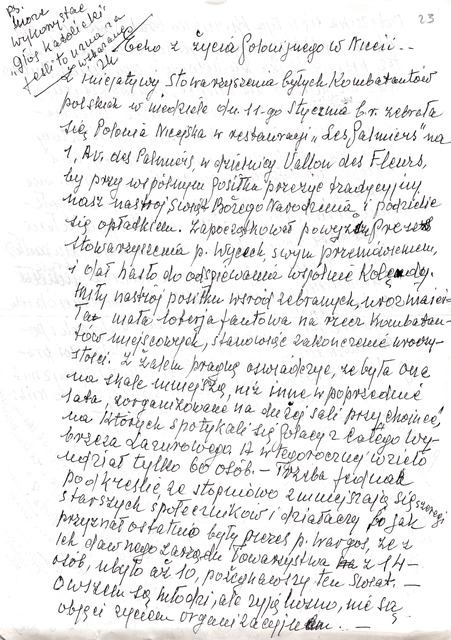 23
Ps.
może
wykorzystać
"głos katolicki"
Echo z życia Polonijnego w Nicei. -
Z inicjatywy Stowarzyszenia byłych Kombatantów
polskich w niedziele dn. 11-go stycznia b.r. zebrała
się Polonia Nicejska w restauracji "Les Palmiers" na
1, Av. des Palmiers, w dzielnicy Vallon des Fleurs,
by przy wspólnym posiłku przeżyć tradycyjny
nasz nastrój Świąt Bożego Narodzenia i podzielić
się opłatkiem. Zapoczątkował powyższe Prezes
stowarzyszenia p. Wycech, swym przemówieniem,
i dał hasło do odśpiewania wspólnie Kolendy.
Miły nastrój posiłku wśród zebranych, urozmaici-
ła mała loterja fantowa na rzecz Kombatan-
tów miejscowych, stanowiąc zakończenie uroczy-
stości. Z żalem pragnę oświadczyć, że była ona
na skalę mniejszą, niż inne w poprzednie
lata, zorganizowane na dużej sali przy choince,
na których spotykali się Polacy z całego Wy-
brzeża Lazurowego. W tegorocznej wzięło
udział tylko 60 osób. - Trzeba jednak
podkreślić, że stopniowo zmniejszają się szeregi
starszych społeczników i działaczy bo jak
przyznał ostatnio były prezes p. Wargos, że z
ich dawnego zarządu Towarzystwa z 14-
osób, ubyło aż 10, pożegnawszy ten świat. -
Owszem są młodzi, ale żyją luźno, nie są
objęci życiem organizacyjnem. -